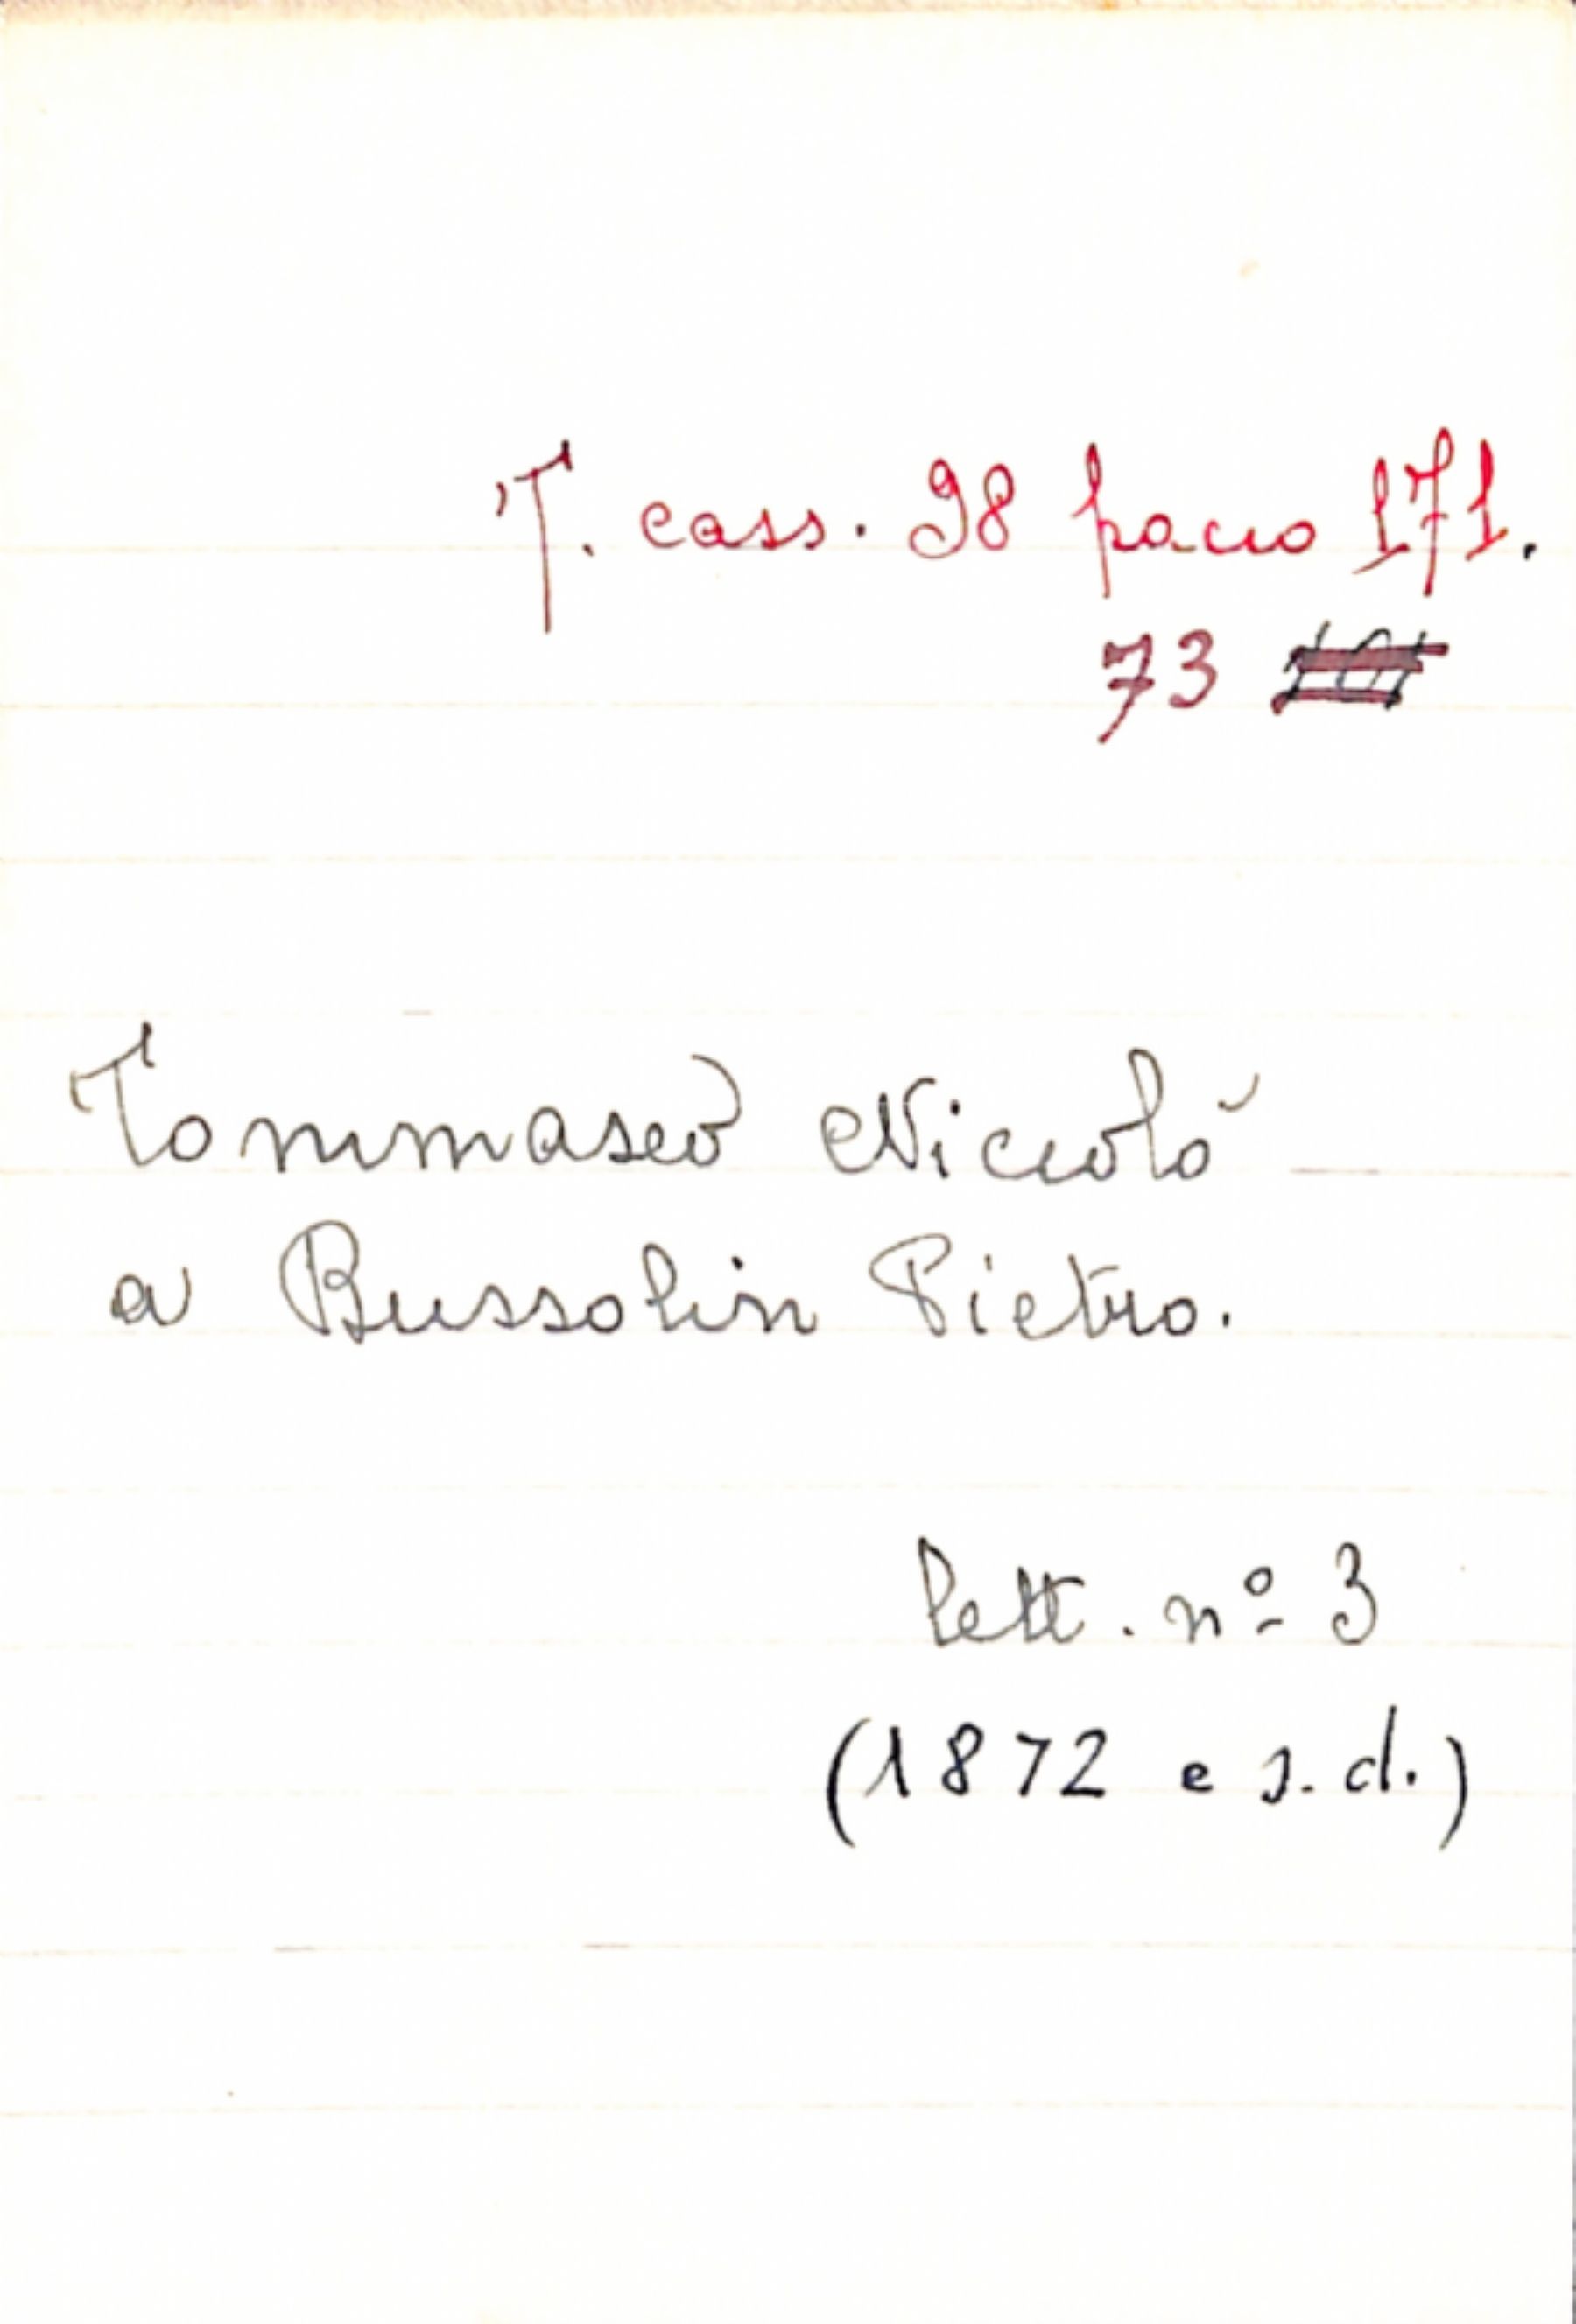 T. cass. 98 pacco 171.
73
Tommaseo Niccolò
a Bussolin Pietro.
lett. nº 3
(1872 e s.d.)